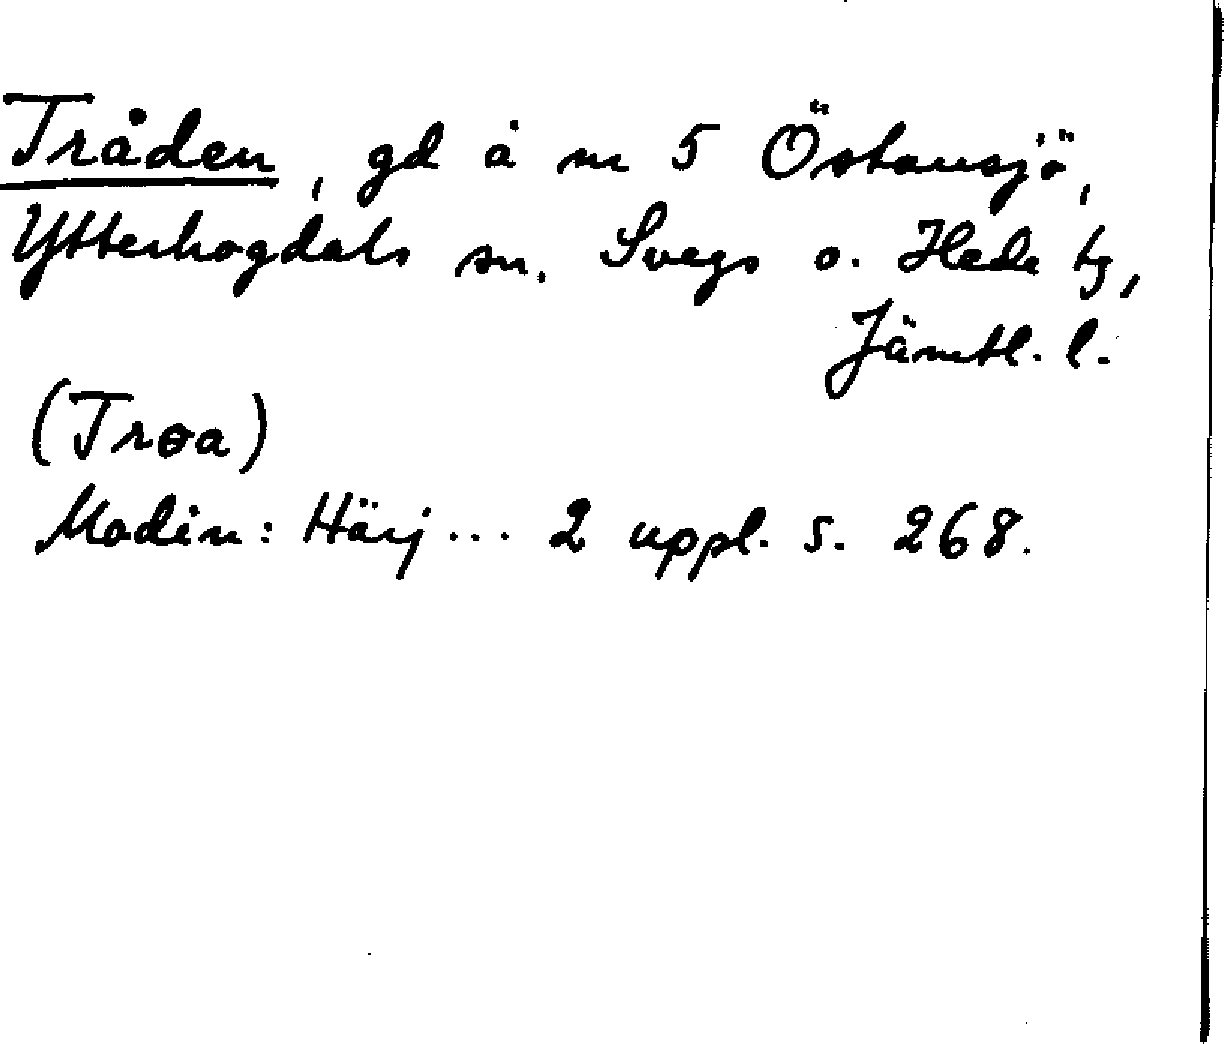 Tråden, gd å m 5 Östansjö,
Ytterhogdals sn. Svegs o. Hede tg,
Jämtl. l.
(Trøa)
Modin: Härj... 2 uppl. s. 268.